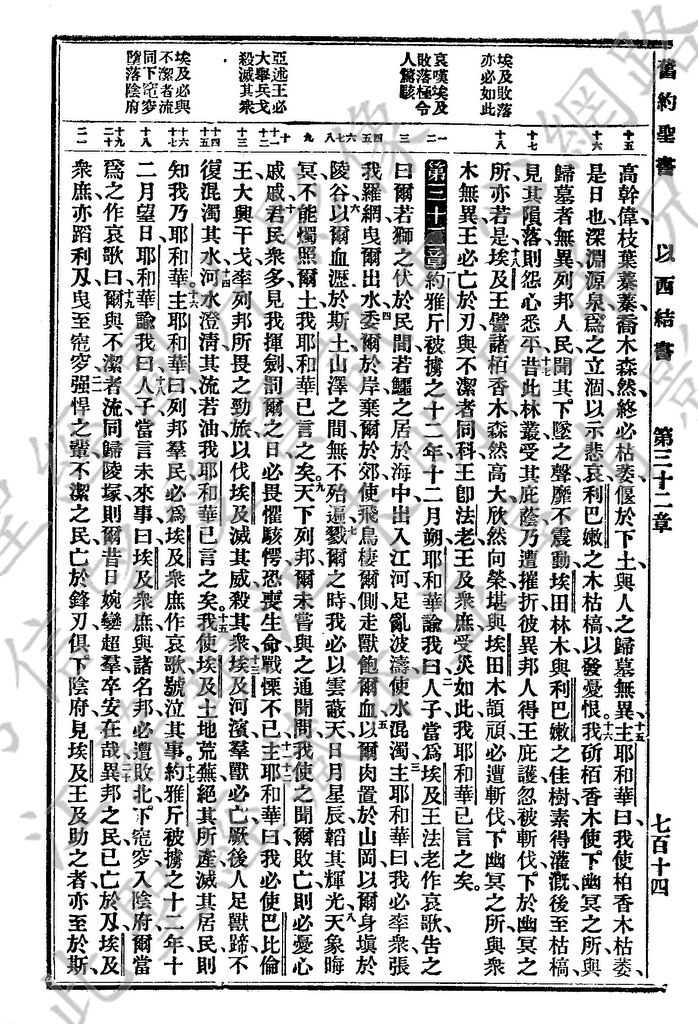 舊約聖書 以西結書 第三十二章 七百十四
埃及敗落
亦必如此
哀嘆埃及
敗落極令
人驚駭
亞述王必
大舉兵戈
殺滅其衆
埃及必與
不潔者流
同下窀穸
墮落陰府
十五
十六
十七
十八
一
二
三
四
五
六
七
八
九
十
十一
十二
十三
十四
十五
十六
十七
十八
十九
二十
二一
高幹偉枝葉蓁蓁喬木森然終必枯萎偃於下土與人之歸墓無異主耶和華曰我使柏香木枯萎
是日也深淵源泉爲之立涸以示悲哀利巴嫩之木枯槁以發憂恨我斫栢香木使下幽冥之所與
歸墓者無異列邦人民聞其下墜之聲靡不震動埃田林木與利巴嫩之佳樹素得灌溉後至枯槁
見其隕落則怨心悉平昔此林叢受其庇蔭乃遭摧折彼異邦人得王庇護忽被斬伐下於幽冥之
所亦若是埃及王譬諸栢香木森然高大欣然向榮堪與埃田木頡頏必遭斬伐下幽冥之所與衆
木無異王必亡於刃與不潔者同科王卽法老王及衆庶受災如此我耶和華已言之矣
第三十二章約雅斤被擄之十二年十二月朔耶和華諭我曰人子當爲埃及王法老作哀歌告之
曰爾若獅之伏於民間若鱷之居於海中出入江河足亂波濤使水混濁主耶和華曰我必率衆張
我羅網曳爾出水委爾於岸棄爾於郊使飛鳥棲爾側走獸飽爾血以爾肉置於山岡以爾身塡於
陵谷以爾血瀝於斯土山澤之間無不殆遍戮爾之時我必以雲蔽天日月星辰韜其輝光天象晦
冥不能燭照爾土我耶和華已言之矣天下列邦爾未嘗與之通聞問我使之聞爾敗亡則必憂心
戚戚君民衆多見我揮劍罰爾之日必畏懼駭愕恐喪生命戰慄不已主耶和華曰我必使巴比倫
王大興干戈率列邦所畏之勁旅以伐埃及滅其威殺其衆埃及河濱羣獸必亡厥後人足獸蹄不
復混濁其水河水澄清其流若油我耶和華已言之矣我使埃及土地荒蕪絕其所產滅其居民則
知我乃耶和華主耶和華曰列邦羣民必爲埃及衆庶作哀歌號泣其事約雅斤被擄之十二年十
二月望日耶和華諭我曰人子當言未來事曰埃及衆庶與諸名邦必遭敗北下窀穸入陰府爾當
爲之作哀歌曰爾與不潔者流同歸陵塚則爾昔日婉孌超羣卒安在哉異邦之民已亡於刃埃及
衆庶亦蹈利刃曳至窀穸强悍之輩不潔之民亡於鋒刃俱下陰府見埃及王及助之者亦至於斯